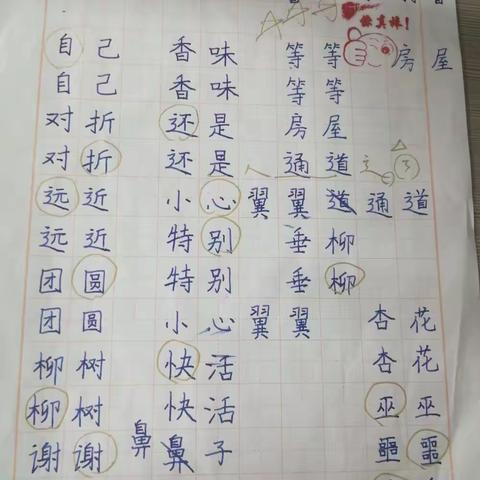 你真棒!
自己 香味 等等 房屋
自己 香味 等等
对折 还是 房屋
对折 还是 通道
远近 小心翼翼 道 通道
远近 特别 垂柳
团圆 特别 垂柳
团圆 小心翼翼 杏花
柳树 快活 杏花
柳树 快活 巫巫
谢谢 鼻 鼻子 噩噩